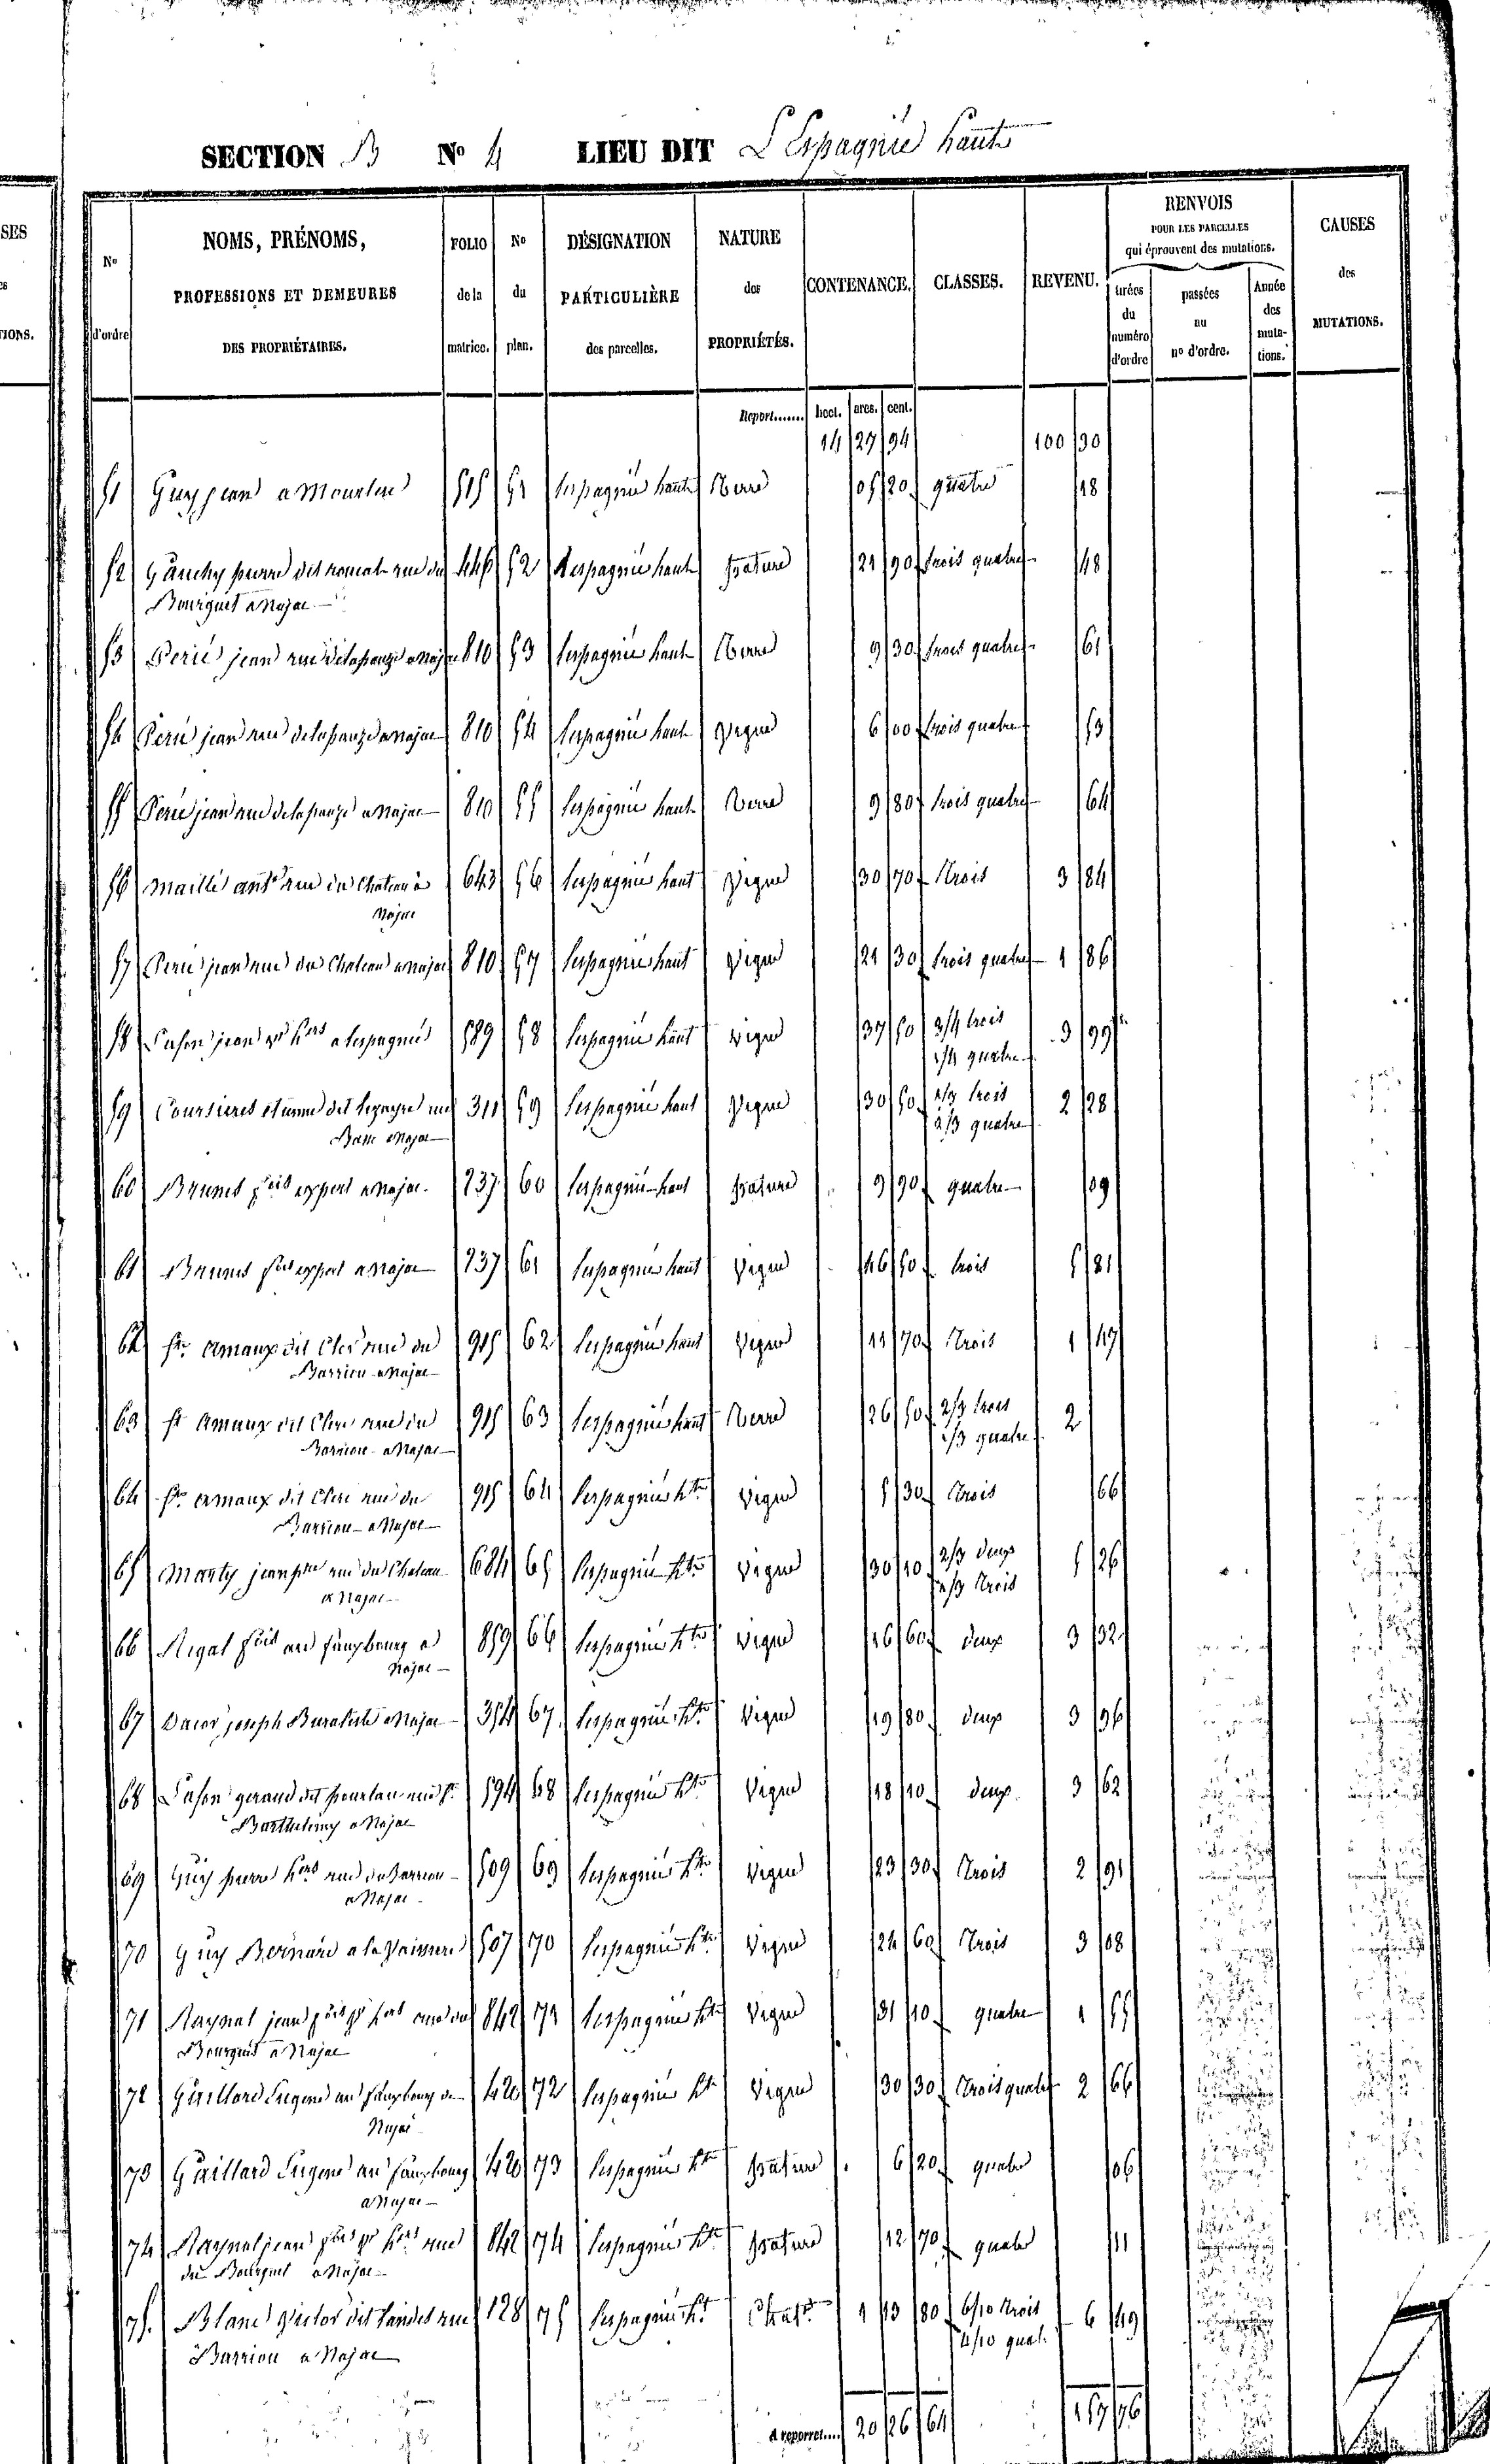 SECTION B N° 4 LIEU DIT L'Espagnié haute
SES
TIONS.
N° d'ordre
NOMS, PRÉNOMS, PROFESSIONS ET DEMEURES DES PROPRIÉTAIRES.
FOLIO de la matrice.
N° du plan.
DÉSIGNATION PARTICULIÈRE des parcelles.
NATURE des PROPRIÉTÉS.
CONTENANCE.
CLASSES.
REVENU.
RENVOIS POUR LES PARCELLES qui éprouvent des mutations.
tirées du numéro d'ordre
passées au n° d'ordre.
Année des muta- tions.
CAUSES des MUTATIONS.
Report....... hect. ares. cent.
14 27 94 100 30
51 Guy jean a 515 51 lespagnié haute Terre 05 20 quatre 18
52 Gauchy pierre dit rue du 446 52 lespagnié haute pature 21 90 trois quatre 48
Bourguet a Najac
53 Perié jean rue a Najac 810 53 lespagnié haute Terre 9 30 trois quatre 61
54 Perié jean rue a Najac 810 54 lespagnié haute Vigne 6 00 trois quatre 53
55 Perié jean rue a Najac 810 55 lespagnié haute Terre 9 80 trois quatre 64
56 Maillé ant^e rue du Chateau à 643 56 lespagnié haut Vigne 30 70 Trois 3 84
Najac
57 Perié jean rue du Chateau a Najac 810 57 lespagnié haut Vigne 21 30 trois quatre 1 86
58 jean h^ers a lespagnié 589 58 lespagnié haut Vigne 37 50 3/4 trois 3 99
1/4 quatre
59 Coursieres etienne dit rue 311 59 lespagnié haut Vigne 30 50 1/3 trois 2 28
2/3 quatre
60 Brunet f^cois expert a Najac 237 60 lespagnié haut pature 9 90 quatre 09
61 Brunet f^cois expert a Najac 237 61 lespagnié haut Vigne 46 50 trois 5 81
62 S^t Amaux dit rue du 915 62 lespagnié haut Vigne 11 70 Trois 1 47
Barriou a Najac
63 S^t Amaux dit rue du 915 63 lespagnié haut Terre 26 50 2/3 trois 2
1/3 quatre
Barriou a Najac
64 S^t Amaux dit rue du 915 64 lespagnié h^te Vigne 5 30 Trois 66
Barriou a Najac
65 Marty jean p^re rue du Chateau 684 65 lespagnié h^te Vigne 30 10 2/3 deux 5 26
1/3 Trois
a Najac
66 Rigal f^cois au fauxbourg a 859 66 lespagnié h^te Vigne 16 60 deux 3 32
Najac
67 joseph Buraliste a Najac 354 67 lespagnié h^te Vigne 19 80 deux 3 96
68 geraud dit rue S^t 594 68 lespagnié h^te Vigne 18 10 deux 3 62
Barthelemy a Najac
69 Guy pierre h^ers rue du Barriou 509 69 lespagnié h^te Vigne 23 30 Trois 2 91
a Najac
70 Guy Bernard a la Vaissiere 507 70 lespagnié h^te Vigne 24 60 Trois 3 08
71 Raynal jean f^cois h^ers rue du 842 71 lespagnié h^te Vigne 31 10 quatre 1 55
Bourguet a Najac
72 Gaillard Eugene au fauxbourg a 420 72 lespagnié h^te Vigne 30 30 Trois quatre 2 66
Najac
73 Gaillard Eugene au fauxbourg 420 73 lespagnié h^te pature 6 20 quatre 06
a Najac
74 Raynal jean f^cois h^ers rue 842 74 lespagnié h^te pature 12 70 quatre 11
du Bourguet a Najac
75 Blanc Victor dit rue 128 75 lespagnié h^te 1 13 80 6/10 Trois 6 49
4/10 quat.
Barriou a Najac
A reporter..... 20 26 64 157 76